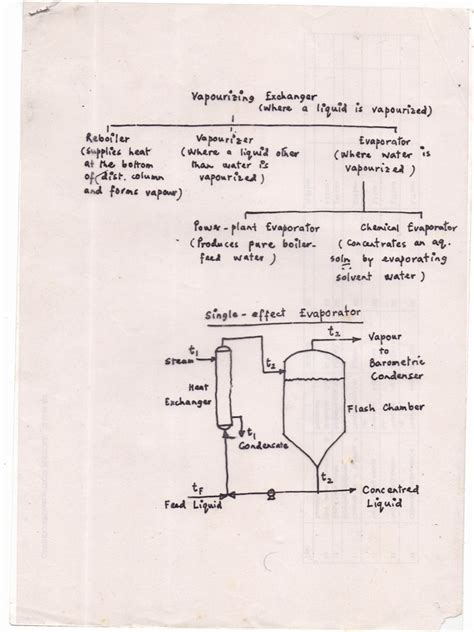 Vapourizing Exchanger
(Where a liquid is vapourized)
Reboiler
(Supplies heat
at the bottom
of dist. column
and forms vapour)
Vapourizer
(Where a liquid other
than water is
vapourized)
Evaporator
(Where water is
vapourized)
Power-plant Evaporator
(Produces pure boiler-
feed water)
Chemical Evaporator
(Concentrates an aq.
soln by evaporating
solvent water)
Single-effect Evaporator
t2
Vapour
to
Barometric
Condenser
t1
Steam
t2
Heat
Exchanger
Flash Chamber
t1
Condensate
t2
tF
Feed Liquid
Concentred
Liquid